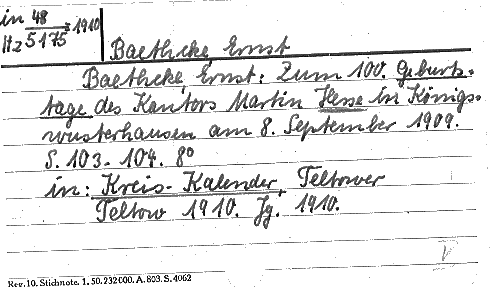 in 48 = 1910
Hz 5175
Baethcke, Ernst
Baethcke, Ernst: Zum 100. Geburts-
tage des Kantors Martin Hesse in Königs-
wusterhausen am 8. September 1909.
S. 103-104. 8°
in: Kreis-Kalender, Teltower
Teltow 1910. Jg. 1910.
Rev. 10. Stichnote. 1. 50. 232000. A. 803. S. 4062